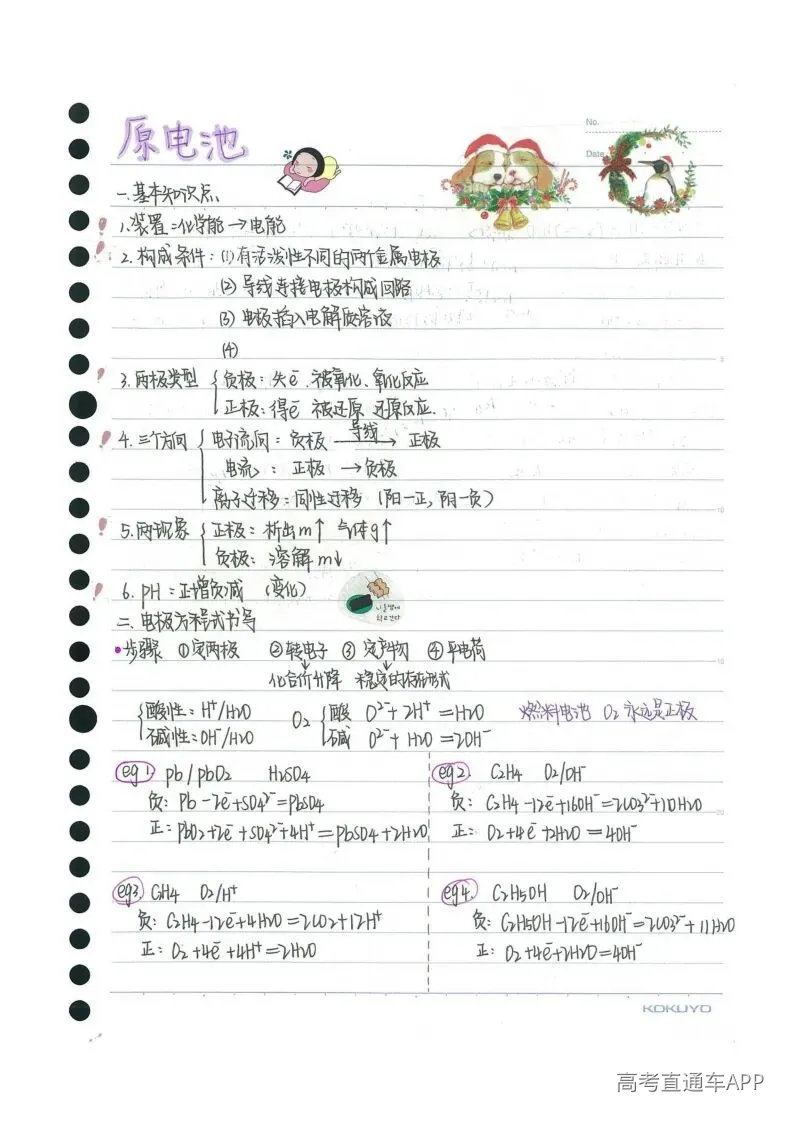 原电池
No.
Date
一.基本知识点
1.装置:化学能→电能
2.构成条件:(1)有活泼性不同的两个金属电极
(2)导线连接电极构成回路
(3)电极插入电解质溶液
(4)
3.两极类型 负极:失e⁻ 被氧化、氧化反应
正极:得e⁻ 被还原 还原反应.
4.三个方向 电子流向:负极 导线→ 正极
电流:正极→负极
离子迁移:同性迁移(阳—正,阴—负)
5.两现象 正极:析出m↑ 气体g↑
负极:溶解m↓
6.pH:正增负减 (变化)
二.电极方程式书写
•步骤 ①定两极 ②转电子 ③定产物 ④平电荷
化合价升降 稳定的存在形式
酸性:H⁺/H2O O2 酸 O²⁻+2H⁺=H2O 燃料电池 O2永远是正极
碱性:OH⁻/H2O 碱 O²⁻+H2O=2OH⁻
eg1. Pb/PbO2 H2SO4
负:Pb-2e⁻+SO4²⁻=PbSO4
正:PbO2+2e⁻+SO4²⁻+4H⁺=PbSO4+2H2O
eg2. C2H4 O2/OH⁻
负:C2H4-12e⁻+16OH⁻=2CO3²⁻+10H2O
正:O2+4e⁻+2H2O=4OH⁻
eg3 C2H4 O2/H⁺
负:C2H4-12e⁻+4H2O=2CO2+12H⁺
正:O2+4e⁻+4H⁺=2H2O
eg4. C2H5OH O2/OH⁻
负:C2H5OH-12e⁻+16OH⁻=2CO3²⁻+11H2O
正:O2+4e⁻+2H2O=4OH⁻
KOKUYO
高考直通车APP